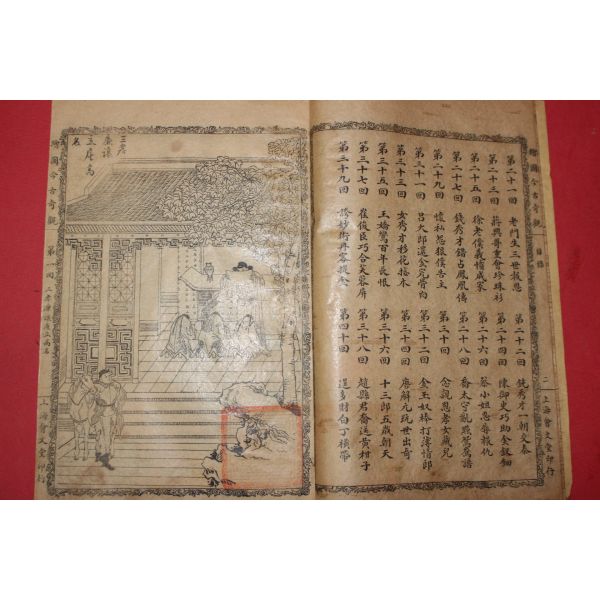 繪圖今古奇觀 目錄 二 上海會文堂印行
第二十一回 老門生三世報恩 第二十二回 鈍秀才一朝交泰
第二十三回 蔣興哥重會珍珠衫 第二十四回 陳御史巧勘金釵鈿
第二十五回 徐老僕義憤成家 第二十六回 蔡小姐忍辱報仇
第二十七回 錢秀才錯占鳳凰儔 第二十八回 喬太守亂點鴛鴦譜
第二十九回 懷私怨狠僕告主 第三十回 念親恩孝女藏兒
第三十一回 呂大郎還金完骨肉 第三十二回 金玉奴棒打薄情郎
第三十三回 女秀才移花接木 第三十四回 唐解元玩世出奇
第三十五回 王嬌鸞百年長恨 第三十六回 十三郎五歲朝天
第三十七回 崔俊臣巧合芙蓉屏 第三十八回 趙縣君喬送黃柑子
第三十九回 誇妙術丹客提金 第四十回 逞多財白丁橫帶
三孝
廉讓
立產高
名
繪圖今古奇觀 第一回 三孝廉讓產立高名 上海會文堂印行